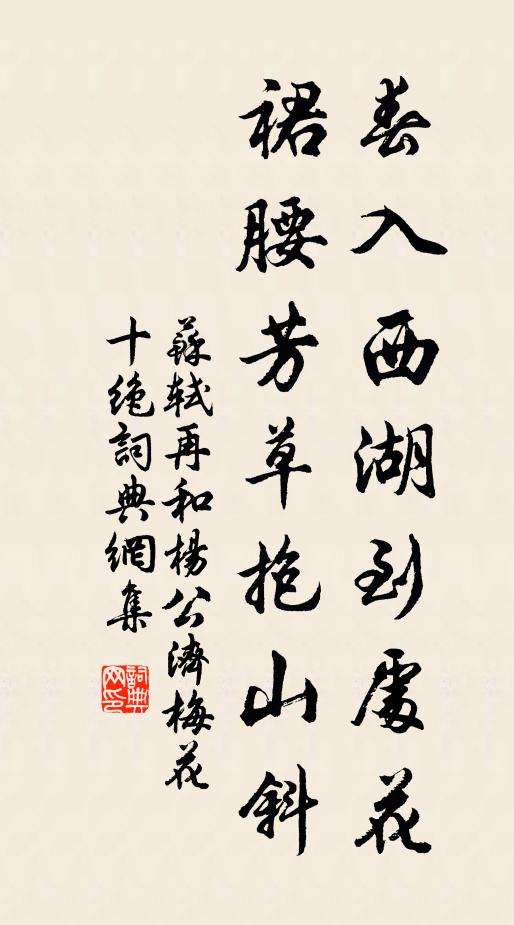 春入西湖到處花
裙腰芳草抱山斜
蘇軾再和楊公濟梅花
十絕詞典網集
詞典
网印